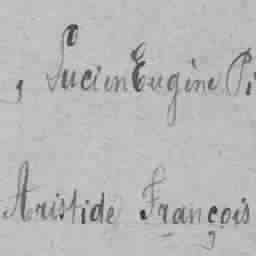 , Lucien Eugène Pi
Aristide François